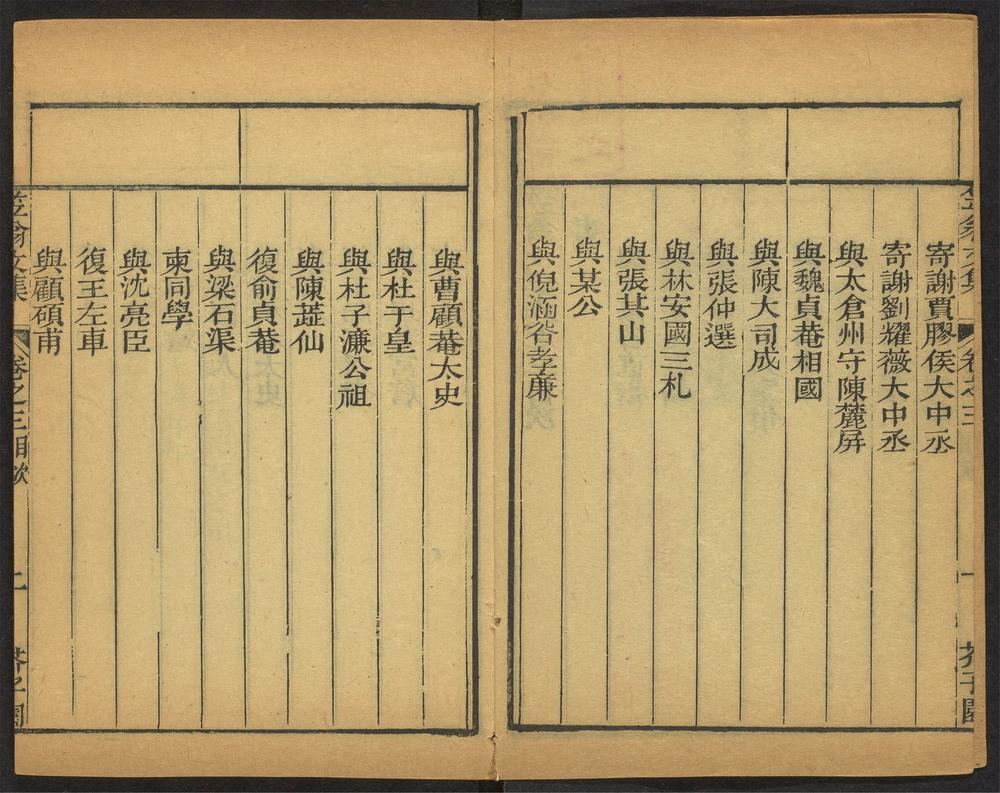 笠翁文集 卷之三 一 芥子園
寄謝賈膠侯大中丞
寄謝劉耀薇大中丞
與太倉州守陳麓屏
與魏貞菴相國
與陳大司成
與張仲選
與林安國三札
與張其山
與某公
與倪涵谷孝廉
與曹顧菴太史
與杜于皇
與杜子濂公祖
與陳蕋仙
復俞貞菴
與梁石渠
柬同學
與沈亮臣
復王左車
與顧碩甫
笠翁文集 卷之三目次 二 芥子園